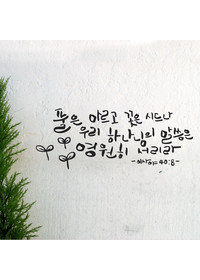 풀은 마르고 꽃은 시드나
우리 하나님의 말씀은
영원히 서리라
-이사야 40:8-